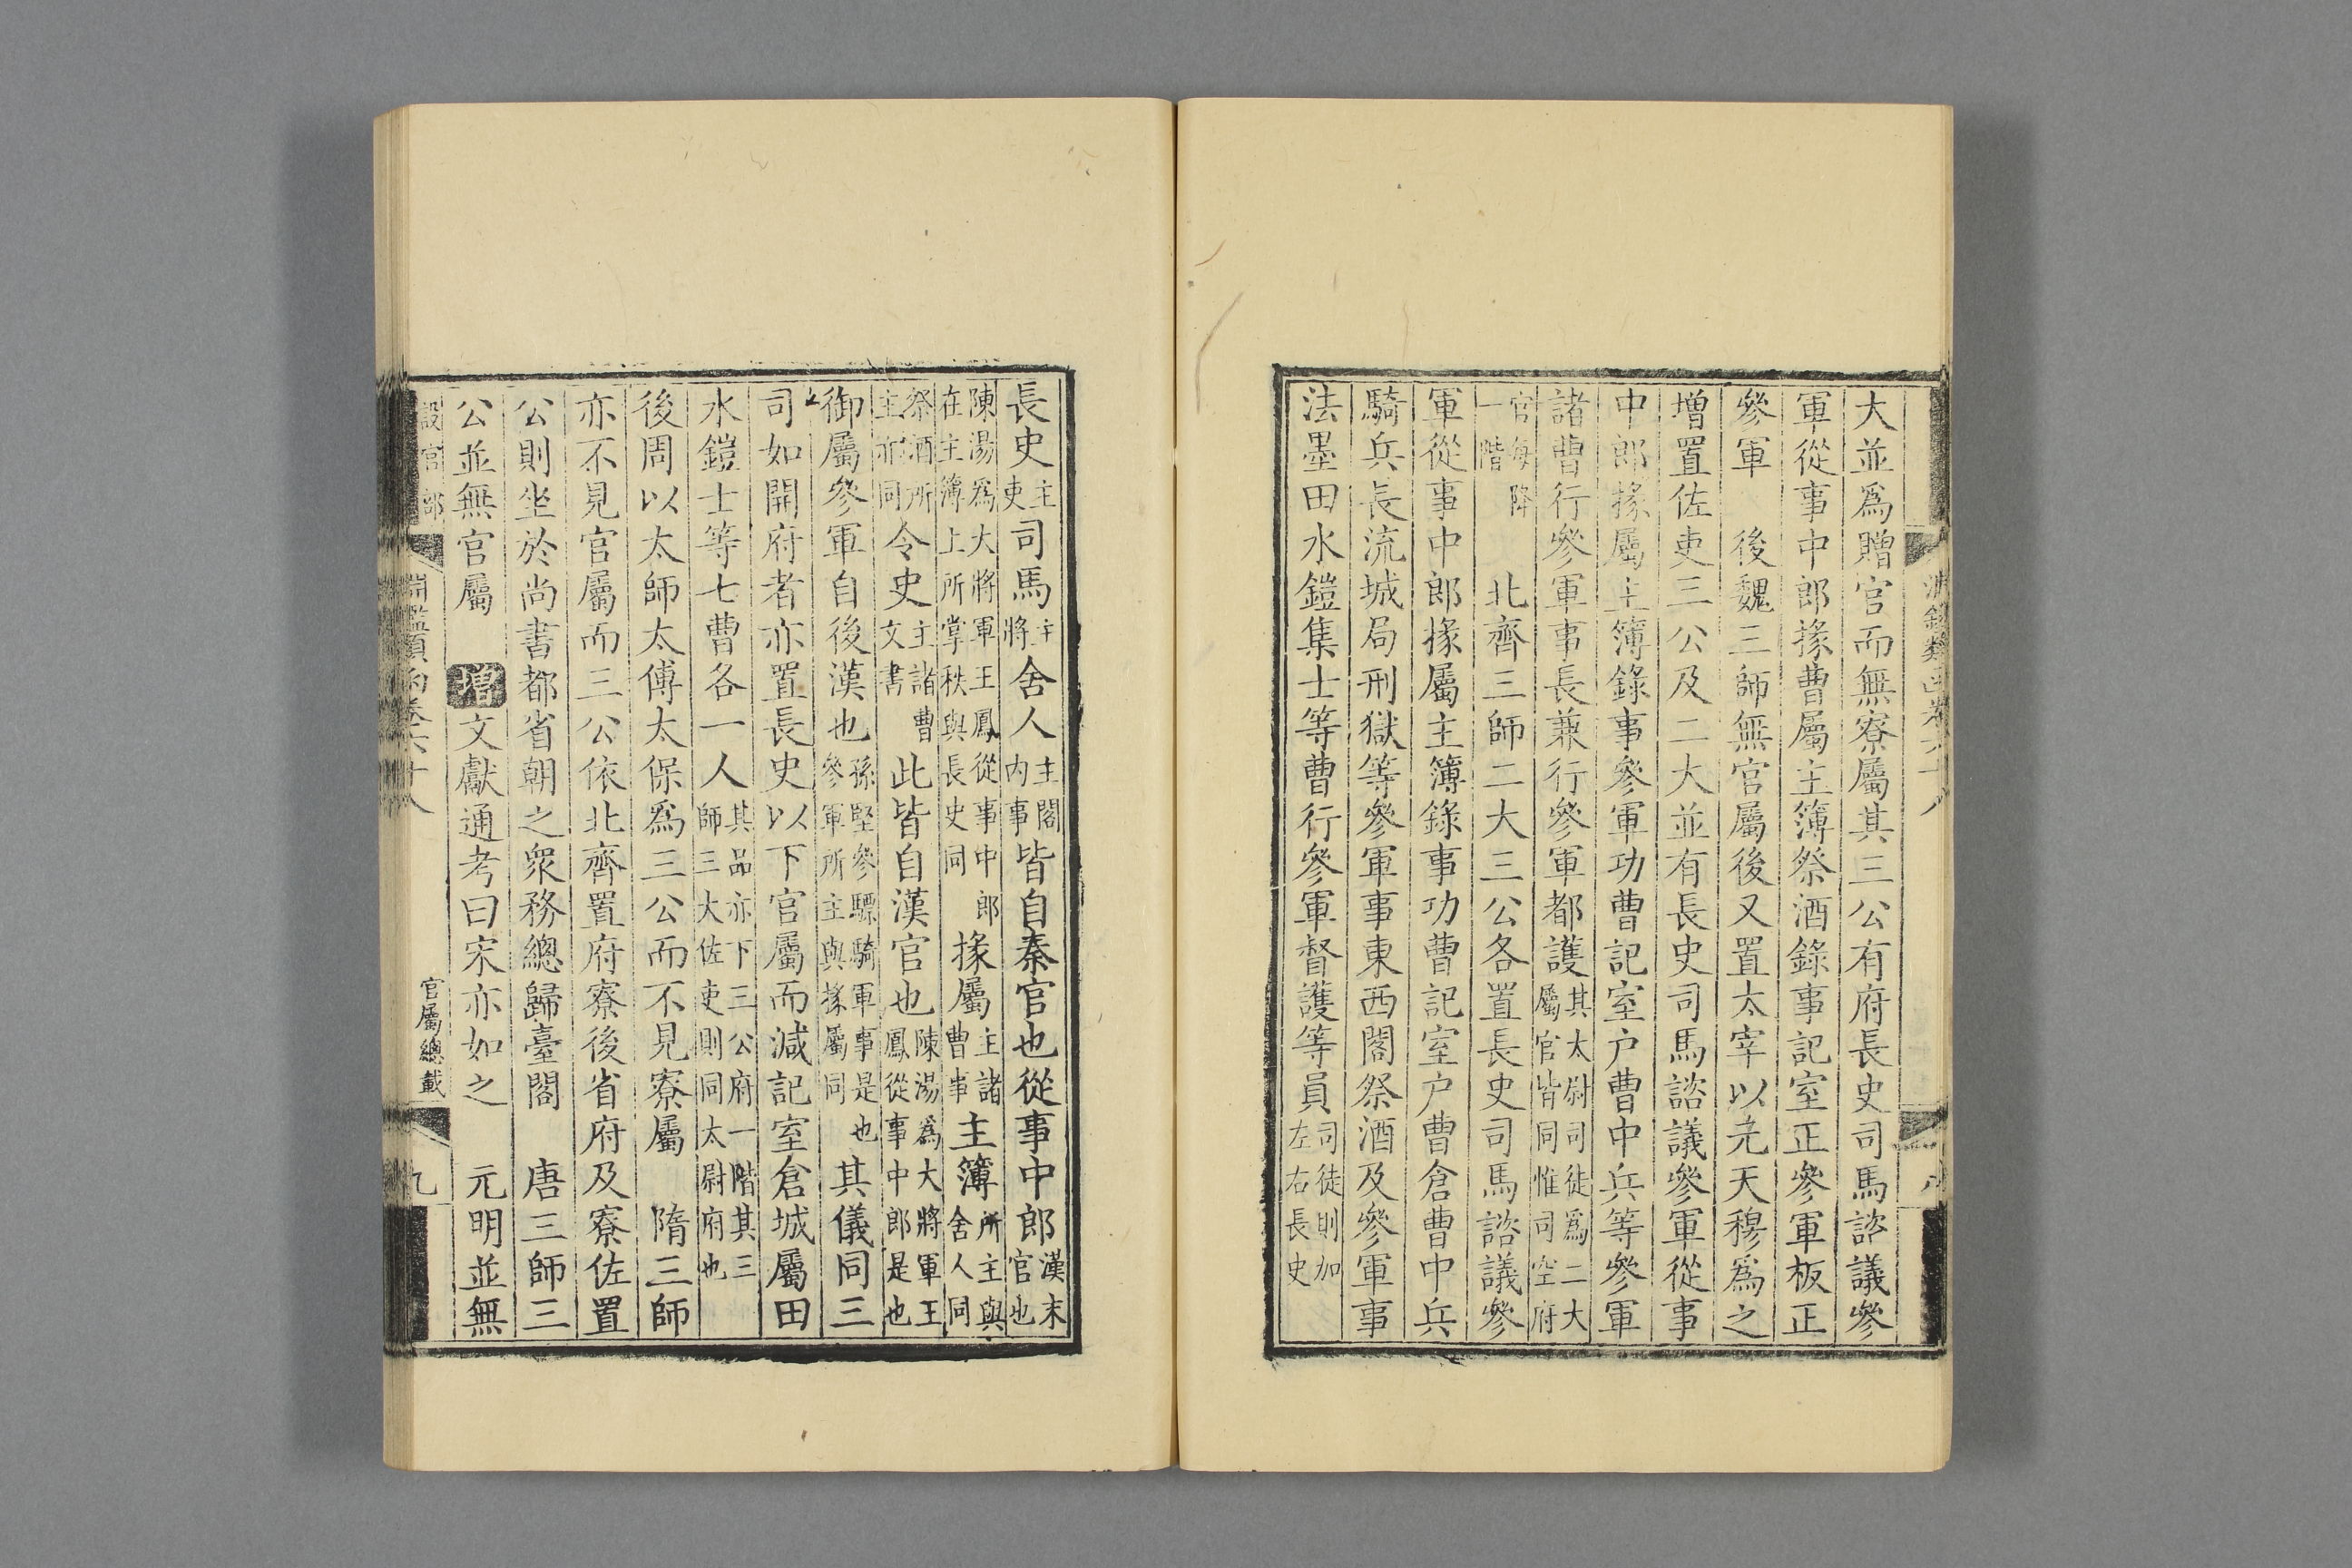 大並爲贈官而無寮屬其三公有府長史司馬諮議參
軍從事中郎掾曹屬主簿祭酒錄事記室正參軍板正
參軍　後魏三師無官屬後又置太宰以元天穆爲之
增置佐吏三公及二大並有長史司馬諮議參軍從事
中郎掾屬主簿錄事參軍功曹記室户曹中兵等參軍
諸曹行參軍事長兼行參軍都護其太尉司徒爲二大屬官皆同惟司空府
官每降一階　北齊三師二大三公各置長史司馬諮議參
軍從事中郎掾屬主簿錄事功曹記室户曹倉曹中兵
騎兵長流城局刑獄等參軍事東西閤祭酒及參軍事
法墨田水鎧集士等曹行參軍督護等員司徒則加左右長史
長史主吏司馬主將舍人主閤內事皆自秦官也從事中郎漢末官也
陳湯爲大將軍王鳳從事中郎在主簿上所掌秩與長史同掾屬主諸曹事主簿所主與舍人同
祭酒所主亦同令史主諸曹文書此皆自漢官也陳湯爲大將軍王鳳從事中郎是也
御屬參軍自後漢也孫堅參驃騎軍事是也參軍所主與掾屬同其儀同三
司如開府者亦置長史以下官屬而減記室倉城屬田
水鎧士等七曹各一人其品亦下三公府一階其三師三大佐吏則同太尉府也
後周以太師太傅太保爲三公而不見寮屬　隋三師
亦不見官屬而三公依北齊置府寮後省府及寮佐置
公則坐於尚書都省朝之衆務總歸臺閣　唐三師三
公並無官屬　增文獻通考曰宋亦如之　元明並無
設官部　淵鑑類函卷六十八　官屬總載　九